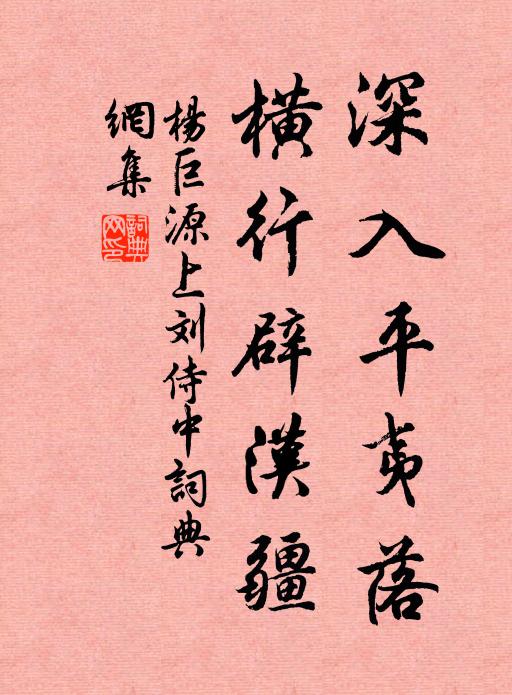 深入平夷落
橫行辟漢疆
楊巨源上刘侍中詞典
網集
詞典
网印